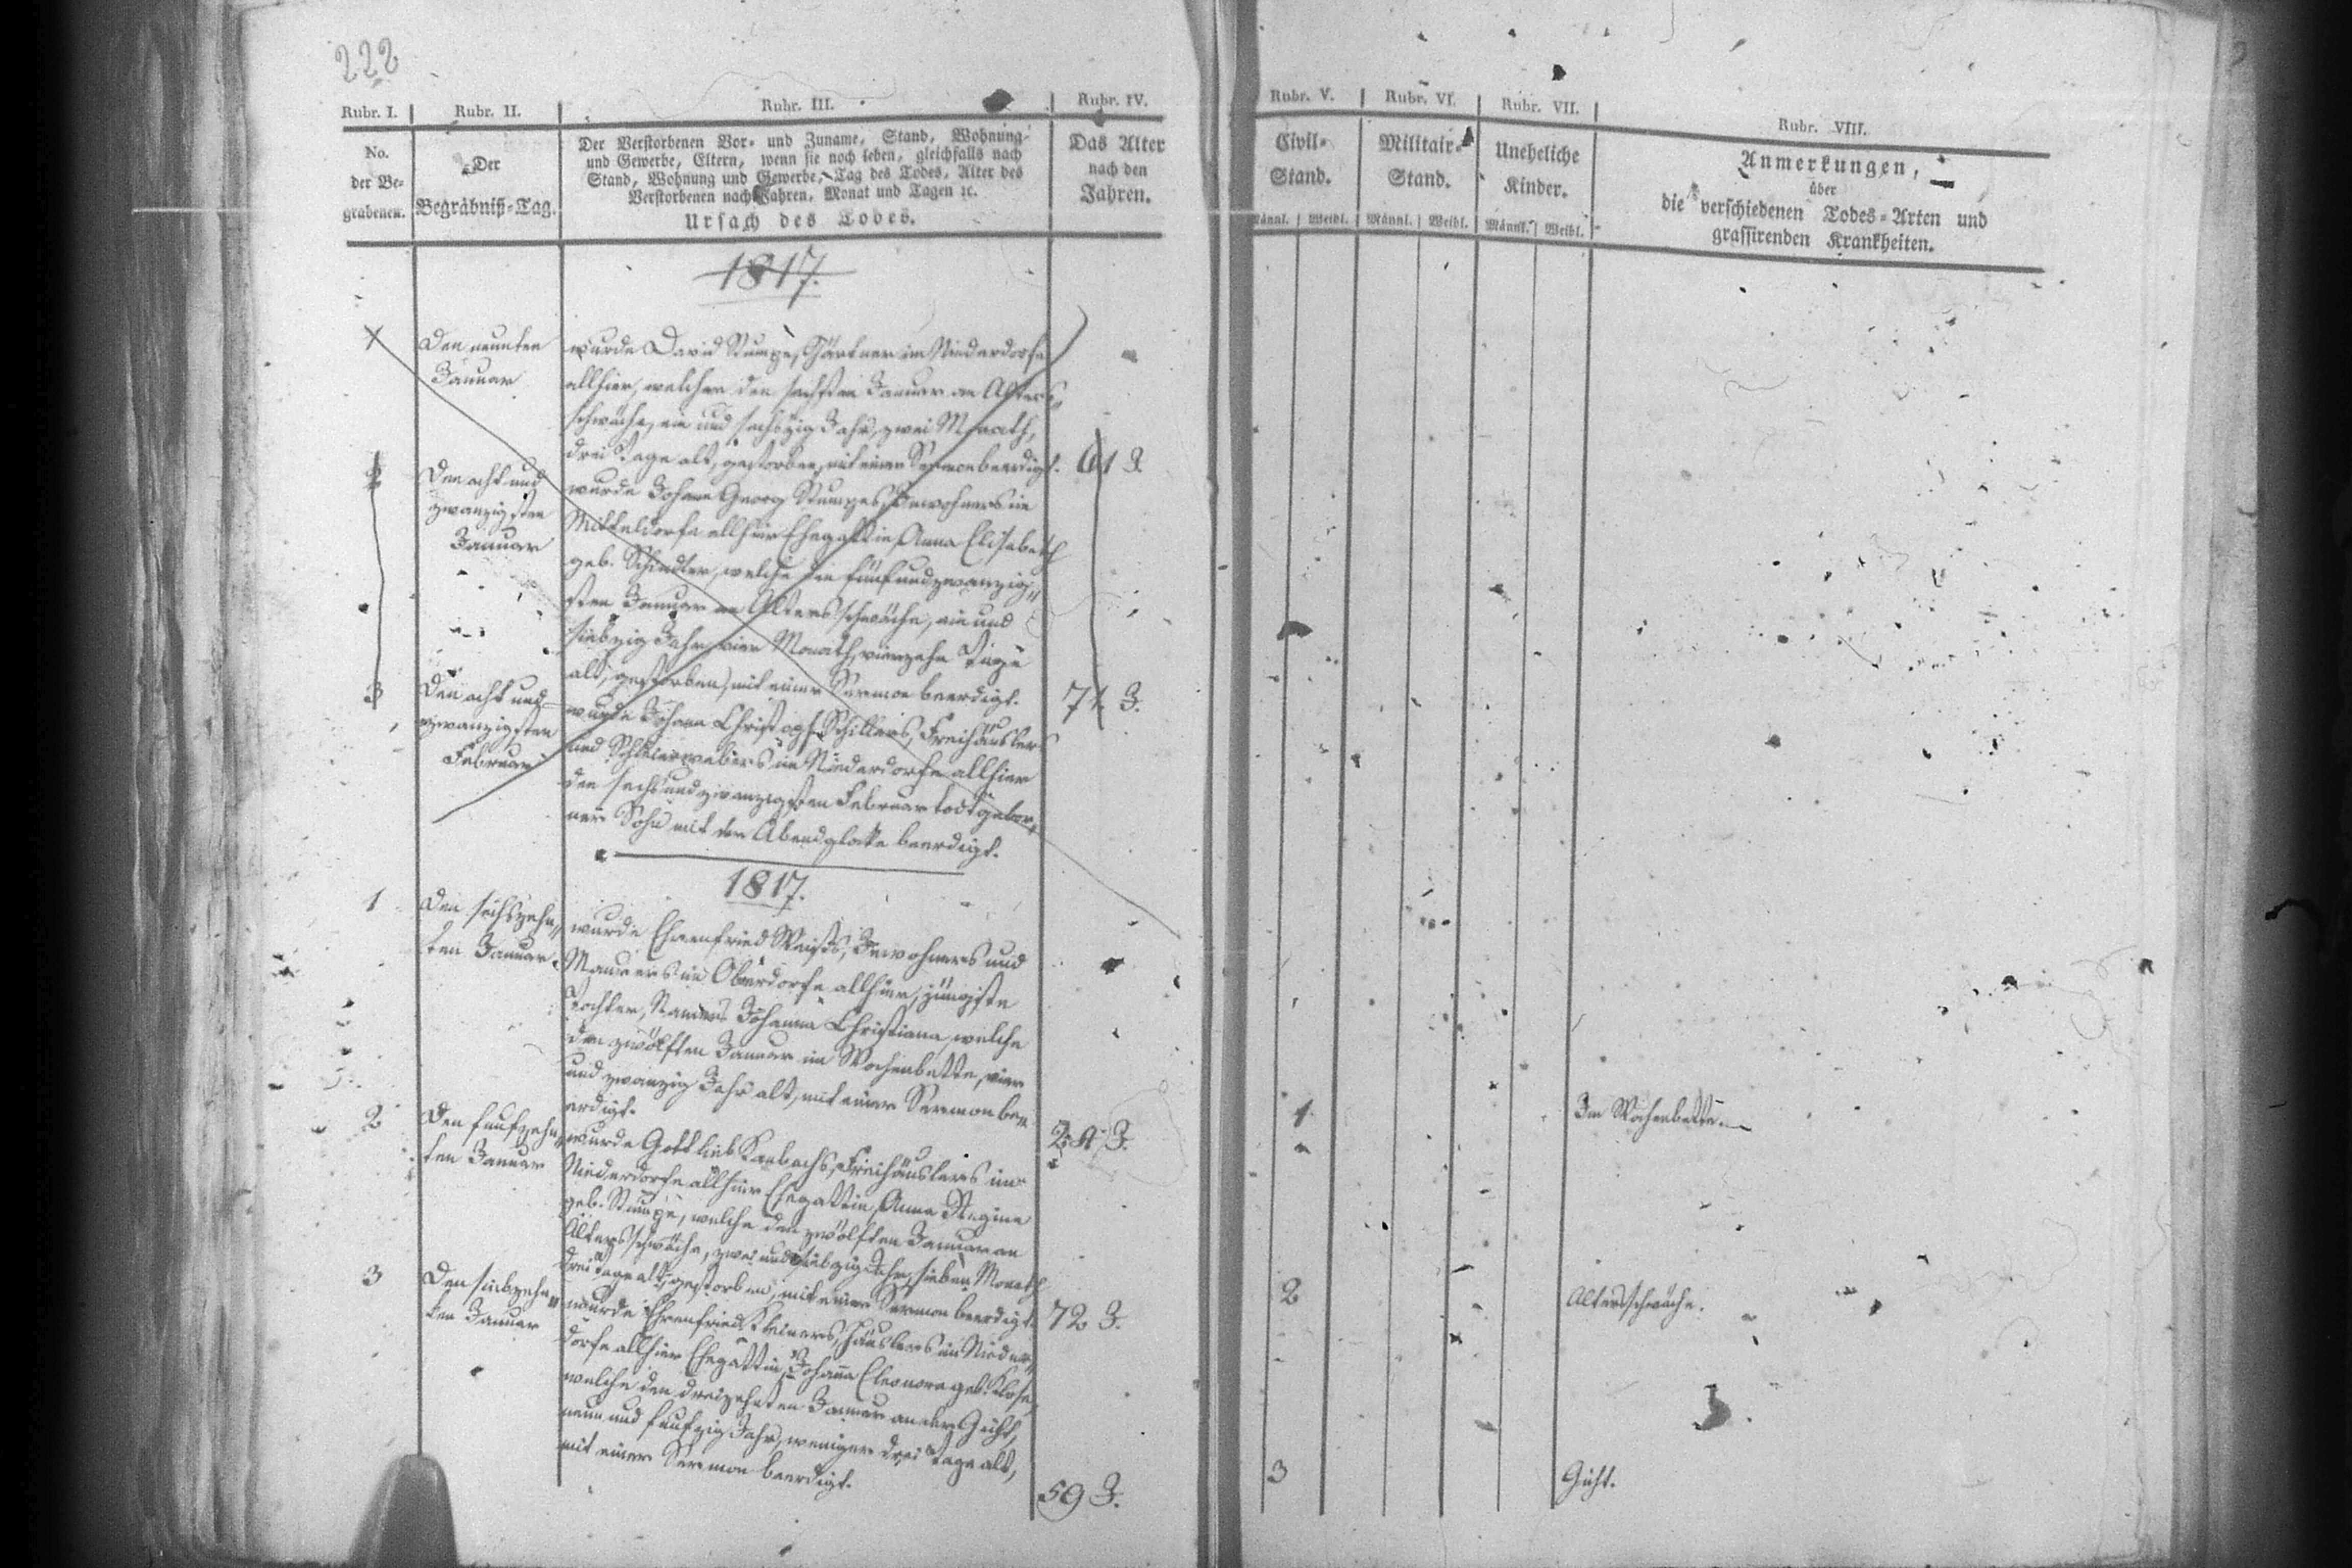 222
Rubr. I. Rubr. II. Rubr. III. Rubr. IV. Rubr. V. Rubr. VI. Rubr. VII. Rubr. VIII.
No.
der Be-
grabenen.
Der
Begräbniß-Tag.
Der Verstorbenen Vor- und Zuname, Stand, Wohnung
und Gewerbe, Eltern, wenn sie noch leben, gleichfalls nach
Stand, Wohnung und Gewerbe, Tag des Todes, Alter des
Verstorbenen nach Jahren, Monat und Tagen ꝛc.
Ursach des Todes.
Das Alter
nach den
Jahren.
Civil-
Stand.
Männl. Weibl.
Militair-
Stand.
Männl. Weibl.
Uneheliche
Kinder.
Männl. Weibl.
Anmerkungen,
über
die verschiedenen Todes-Arten und
grassirenden Krankheiten.
1817.
Den neunten
Januar
wurde David Stumpe, Gärtner im Niederdorfe
allhier, welcher den sechsten Januar an Alters
schwäche, ein und sechszig Jahr, zwei Monath,
drei Tage alt, gestorben, mit einer Sermon beerdigt.
61 J.
2
Den acht und
zwanzigsten
Januar
wurde Johann Georg Stumpes, Inwohners im
Mitteldorfe allhier Ehegattin, Anna Elisabeth
geb. Schindler, welche den fünfundzwanzig-
sten Januar an Altersschwäche, ein und
siebzig Jahr, vier Monath, vierzehn Tage
alt, gestorben, mit einer Sermon beerdigt.
71. J.
3
Den acht und
zwanzigsten
Februar
wurde Johann Christoph Schillers, Freihäuslers
und Schleierwebers im Niederdorfe allhier
den sechsundzwanzigsten Februar todtgebor-
ner Sohn mit der Abendglocke beerdigt.
1817.
1
Den sechszehn-
ten Januar.
wurde Ehrenfried Weists, Inwohners und
Maurers im Oberdorfe allhier, jüngste
Tochter, Namens Johanna Christiana, welche
den zwölften Januar im Wochenbette, vier
und zwanzig Jahr alt, mit einer Sermon be-
erdigt.
24 J.
1
Im Wochenbette.
2
Den funfzehn-
ten Januar
wurde Gottlieb Karbachs, Freihäuslers im
Niederdorfe allhier Ehegattin, Anna Regina
geb. Stumpe, welche den zwölften Januar an
Altersschwäche, zwei und siebzig Jahr, sieben Monath
drei Tage alt, gestorben, mit einer Sermon beerdigt.
72 J.
2
Altersschwäche.
3
Den siebzehn-
ten Januar
wurde Ehrenfried Kleiners, Häuslers im Nieder-
dorfe allhier Ehegattin, Johanna Eleonora geb. Klose,
welche den dreizehnten Januar an der Gicht,
neun und funfzig Jahr, weniger drei Tage alt,
mit einer Sermon beerdigt.
59 J.
3
Gicht.